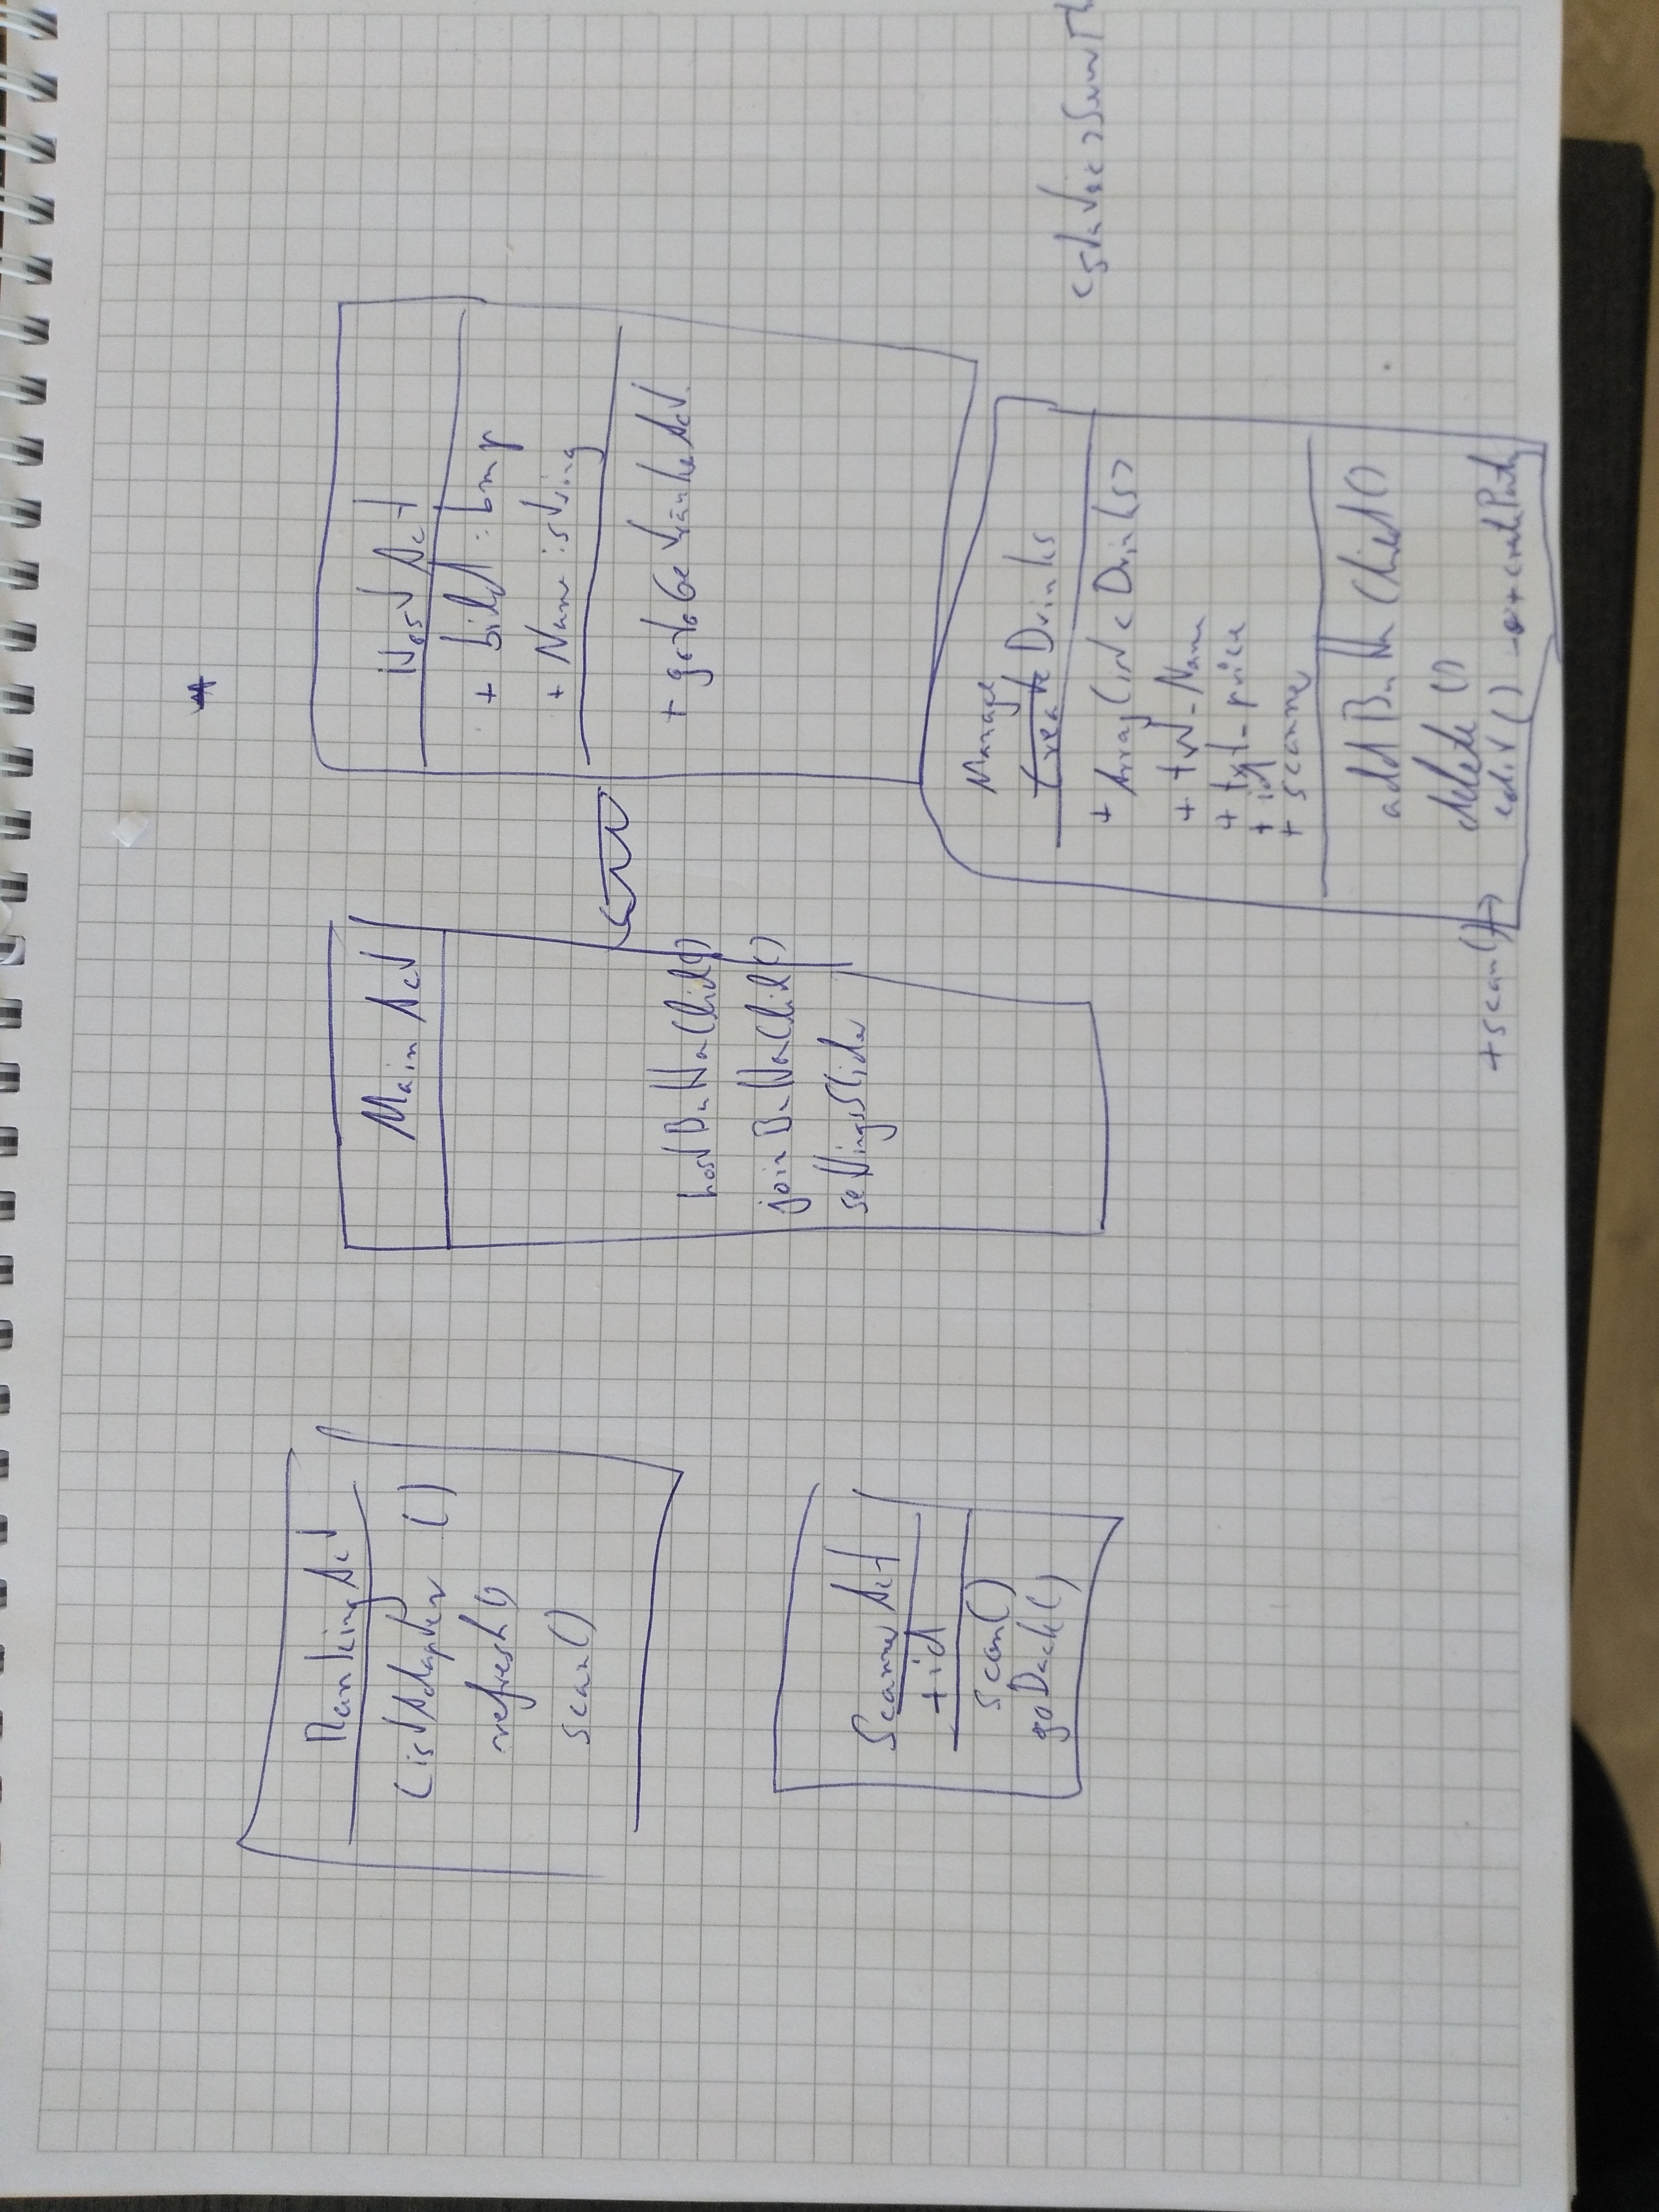 RankingAct
ListAdapter ()
refresh()
scan()
Scanner Act
+ id
scan()
goBack()
Main Act
hostButtonClick()
joinButtonClick()
settingsSlider
Host Act
+ bild : bmp
+ Name : string
+ gotoGetränkeAct
Manage
Create Drinks
+ ArrayList<Drinks>
+ txt-Name
+ txt-price
+ id
+ scanner
add Button Click()
delete()
edit()
+ createParty
+scan()